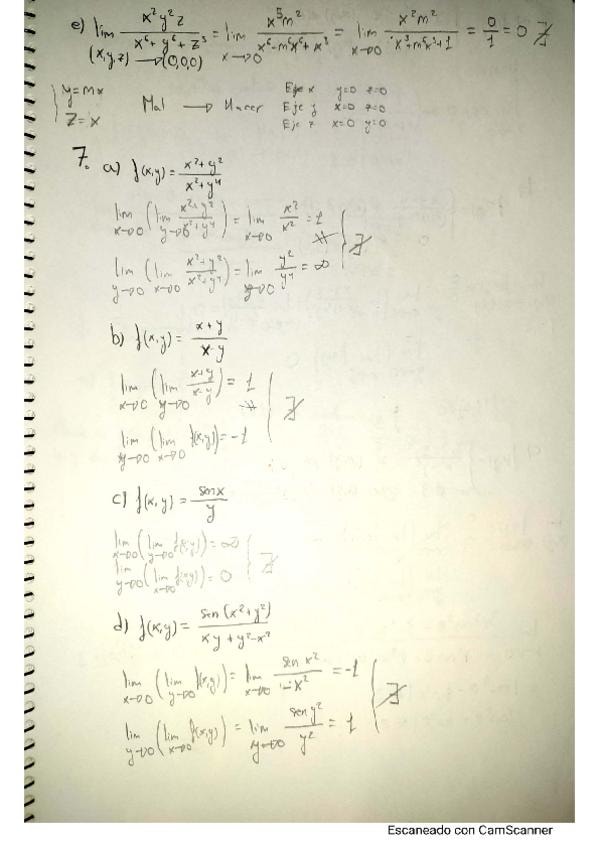 e) lim x²y²z / x⁶+y⁶+z³ = lim x⁵m² / x⁶-m⁶x⁶+x³ = lim x²m² / x³+m⁶x³+1 = 0/1 = 0 ∄
(x,y,z)→(0,0,0) x→0 x→0
{ y=mx
z=x
Mal → Hacer
Eje x y=0 z=0
Eje y x=0 z=0
Eje z x=0 y=0
7. a) f(x,y)= x²+y² / x²+y⁴
lim x→0 (lim y→0 x²+y² / x²+y⁴) = lim x→0 x²/x² = 1
lim y→0 (lim x→0 x²+y² / x²+y⁴) = lim y→0 y²/y⁴ = ∞ } ∄
b) f(x,y)= x+y / x-y
lim x→0 (lim y→0 x+y / x-y) = 1
lim y→0 (lim x→0 f(x,y)) = -1 } ∄
c) f(x,y) = senx / y
lim x→0 (lim y→0 f(x,y)) = ∞
lim y→0 (lim x→0 f(x,y)) = 0 } ∄
d) f(x,y) = sen(x²+y²) / xy+y²-x²
lim x→0 (lim y→0 f(x,y)) = lim x→0 sen x² / -x² = -1
lim y→0 (lim x→0 f(x,y)) = lim y→0 sen y² / y² = 1 } ∄
Escaneado con CamScanner